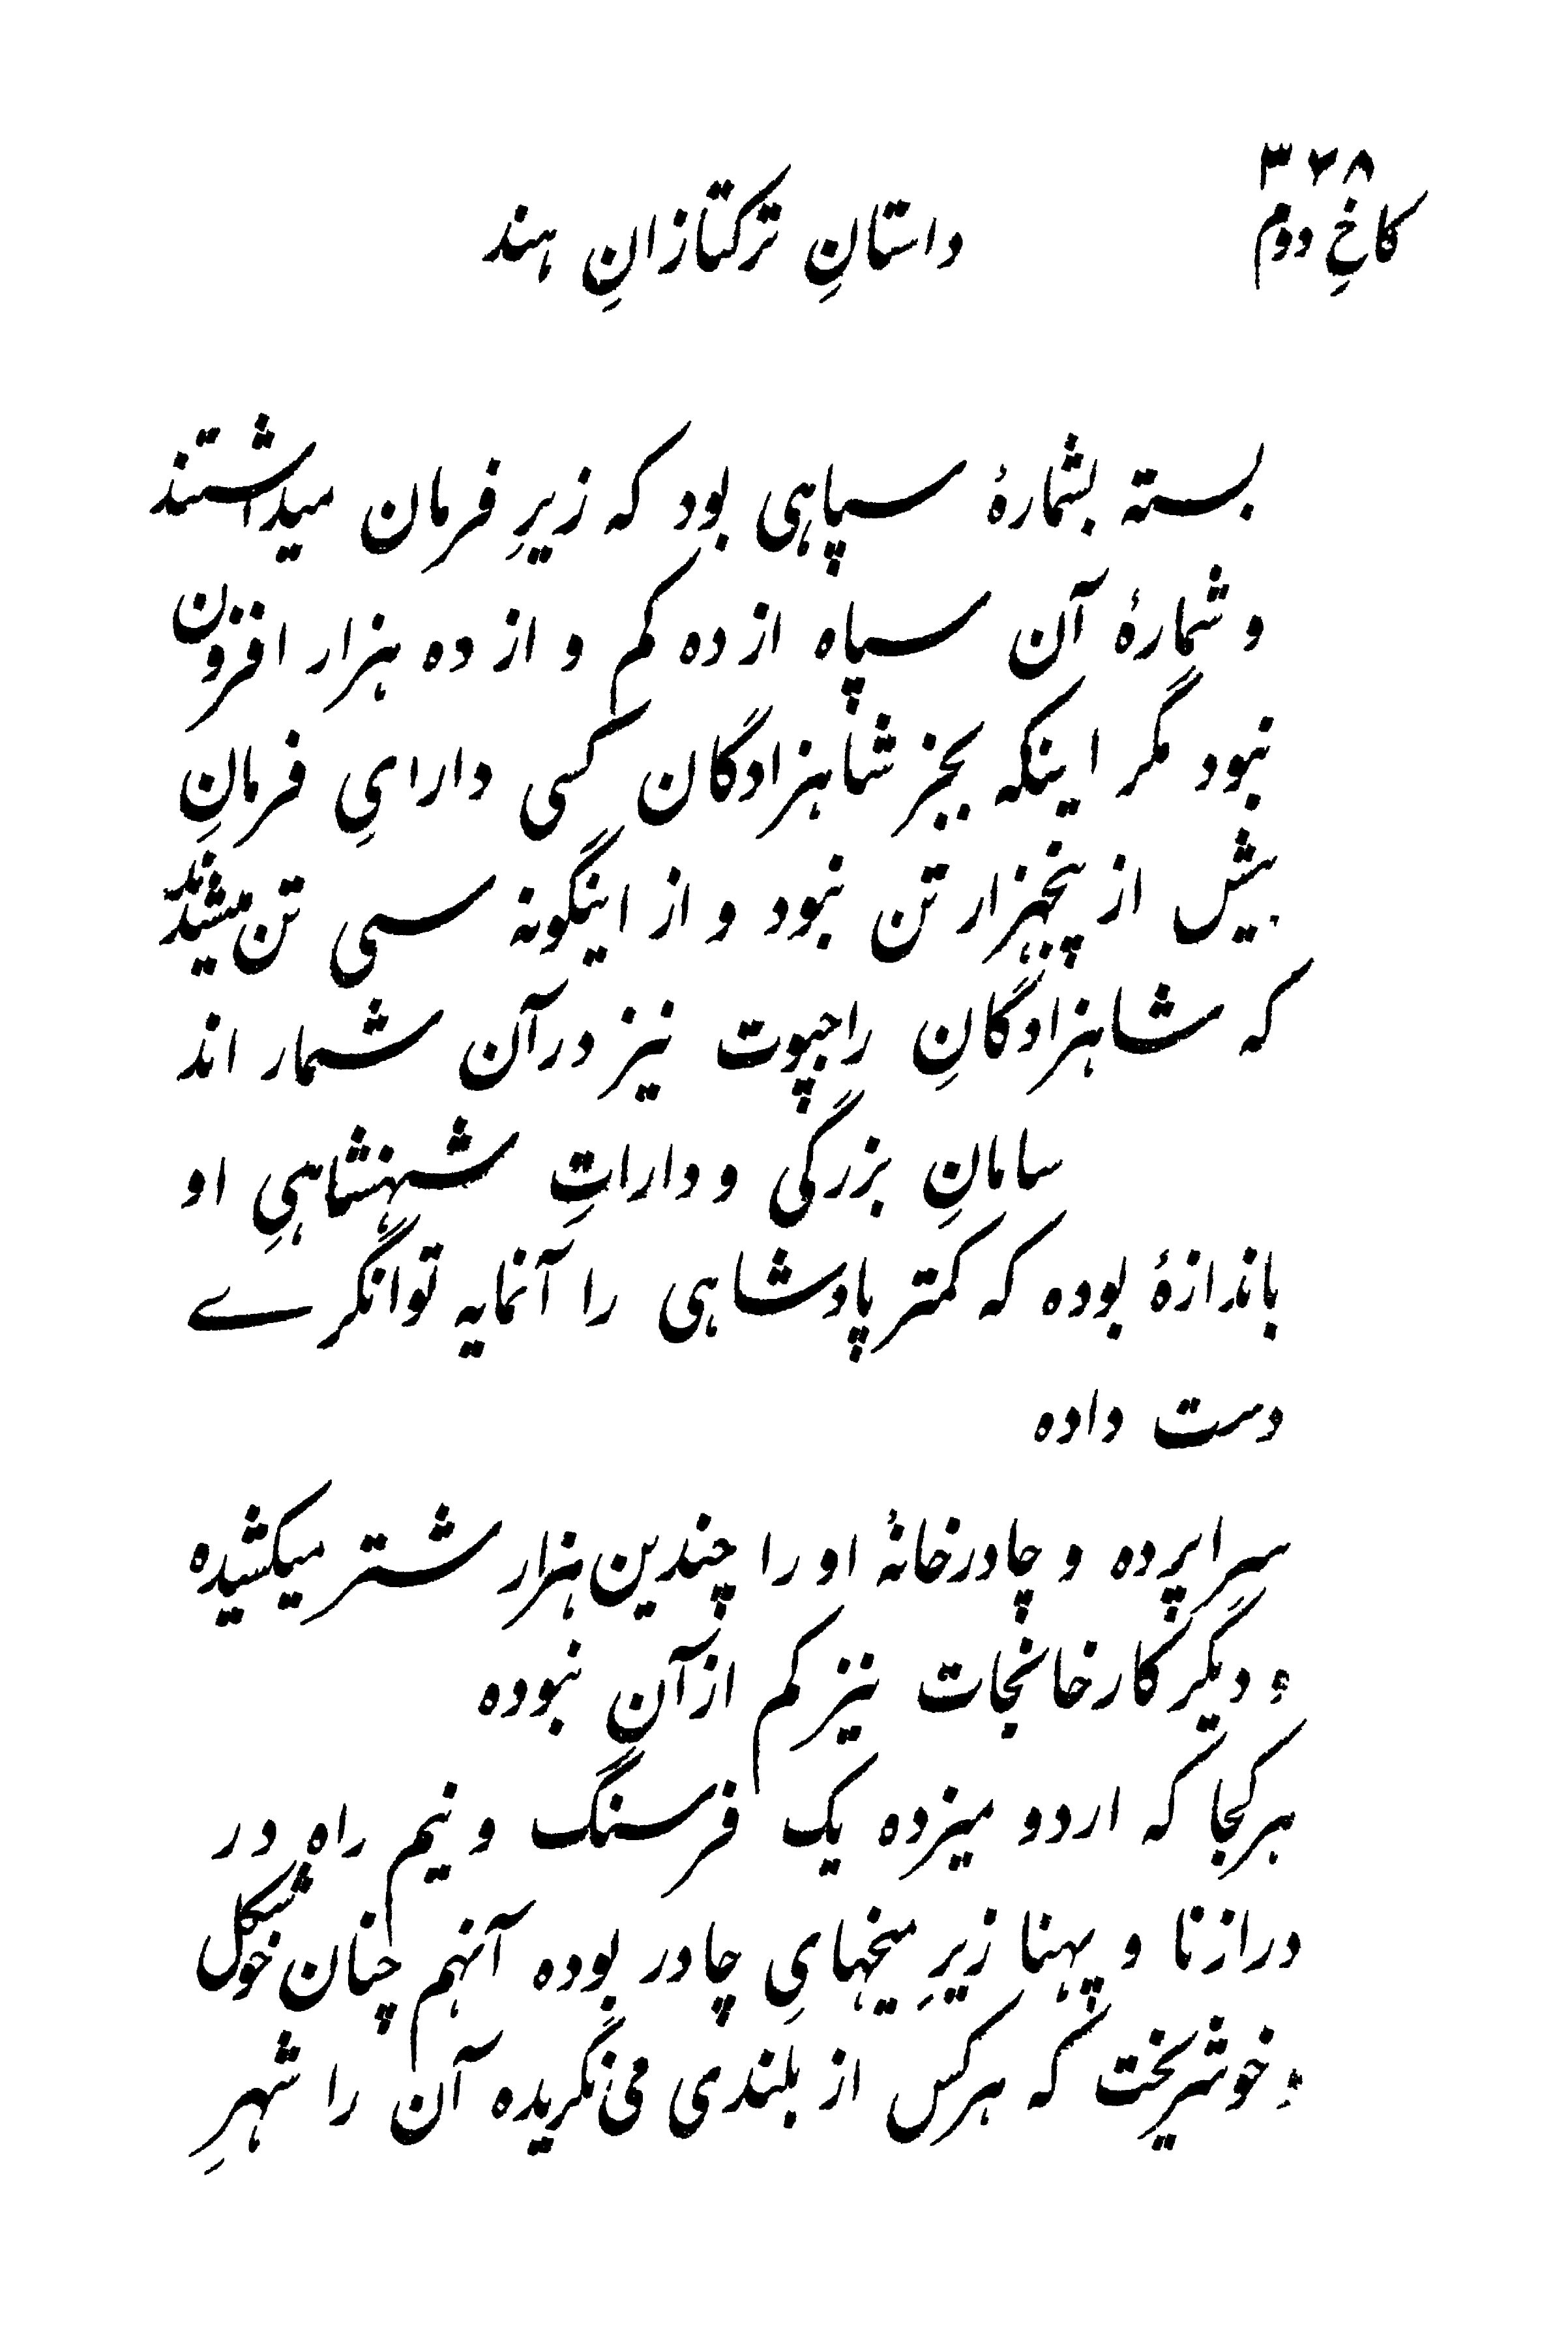 ۳۶۸
کاخِ دوم داستانِ ترکتازانِ هند
بسته بشمارهٔ سپاهی بود که زیرِ فرمان میداشتند
و شمارهٔ آن سپاه از ده کم و از ده هزار افزون
نبود مگر اینکه بجز شاهزادگان کسی دارایِ فرمانِ
بیش از پنجهزار تن نبود و از اینگونه سی تن میشدند
که شاهزادگانِ راجپوت نیز درآن شمار اند
سامانِ بزرگی و داراتِ شهنشاهیِ او
باندازهٔ بوده که کمتر پادشاهی را آنمایه توانگرے
دست داده
سراپرده و چادرخانهٔ او را چندین هزار شتر میکشیده
و دیگر کارخانجات نیز کم ازآن نبوده
هرکجا که اردو میزده یک فرسنگ و نیم راه در
درازنا و پهنا زیرِ میخهایِ چادر بوده آنهم چنان خوشگل
و خوشریخت که هرکس از بلندی می‌نگریده آن را شهرِ